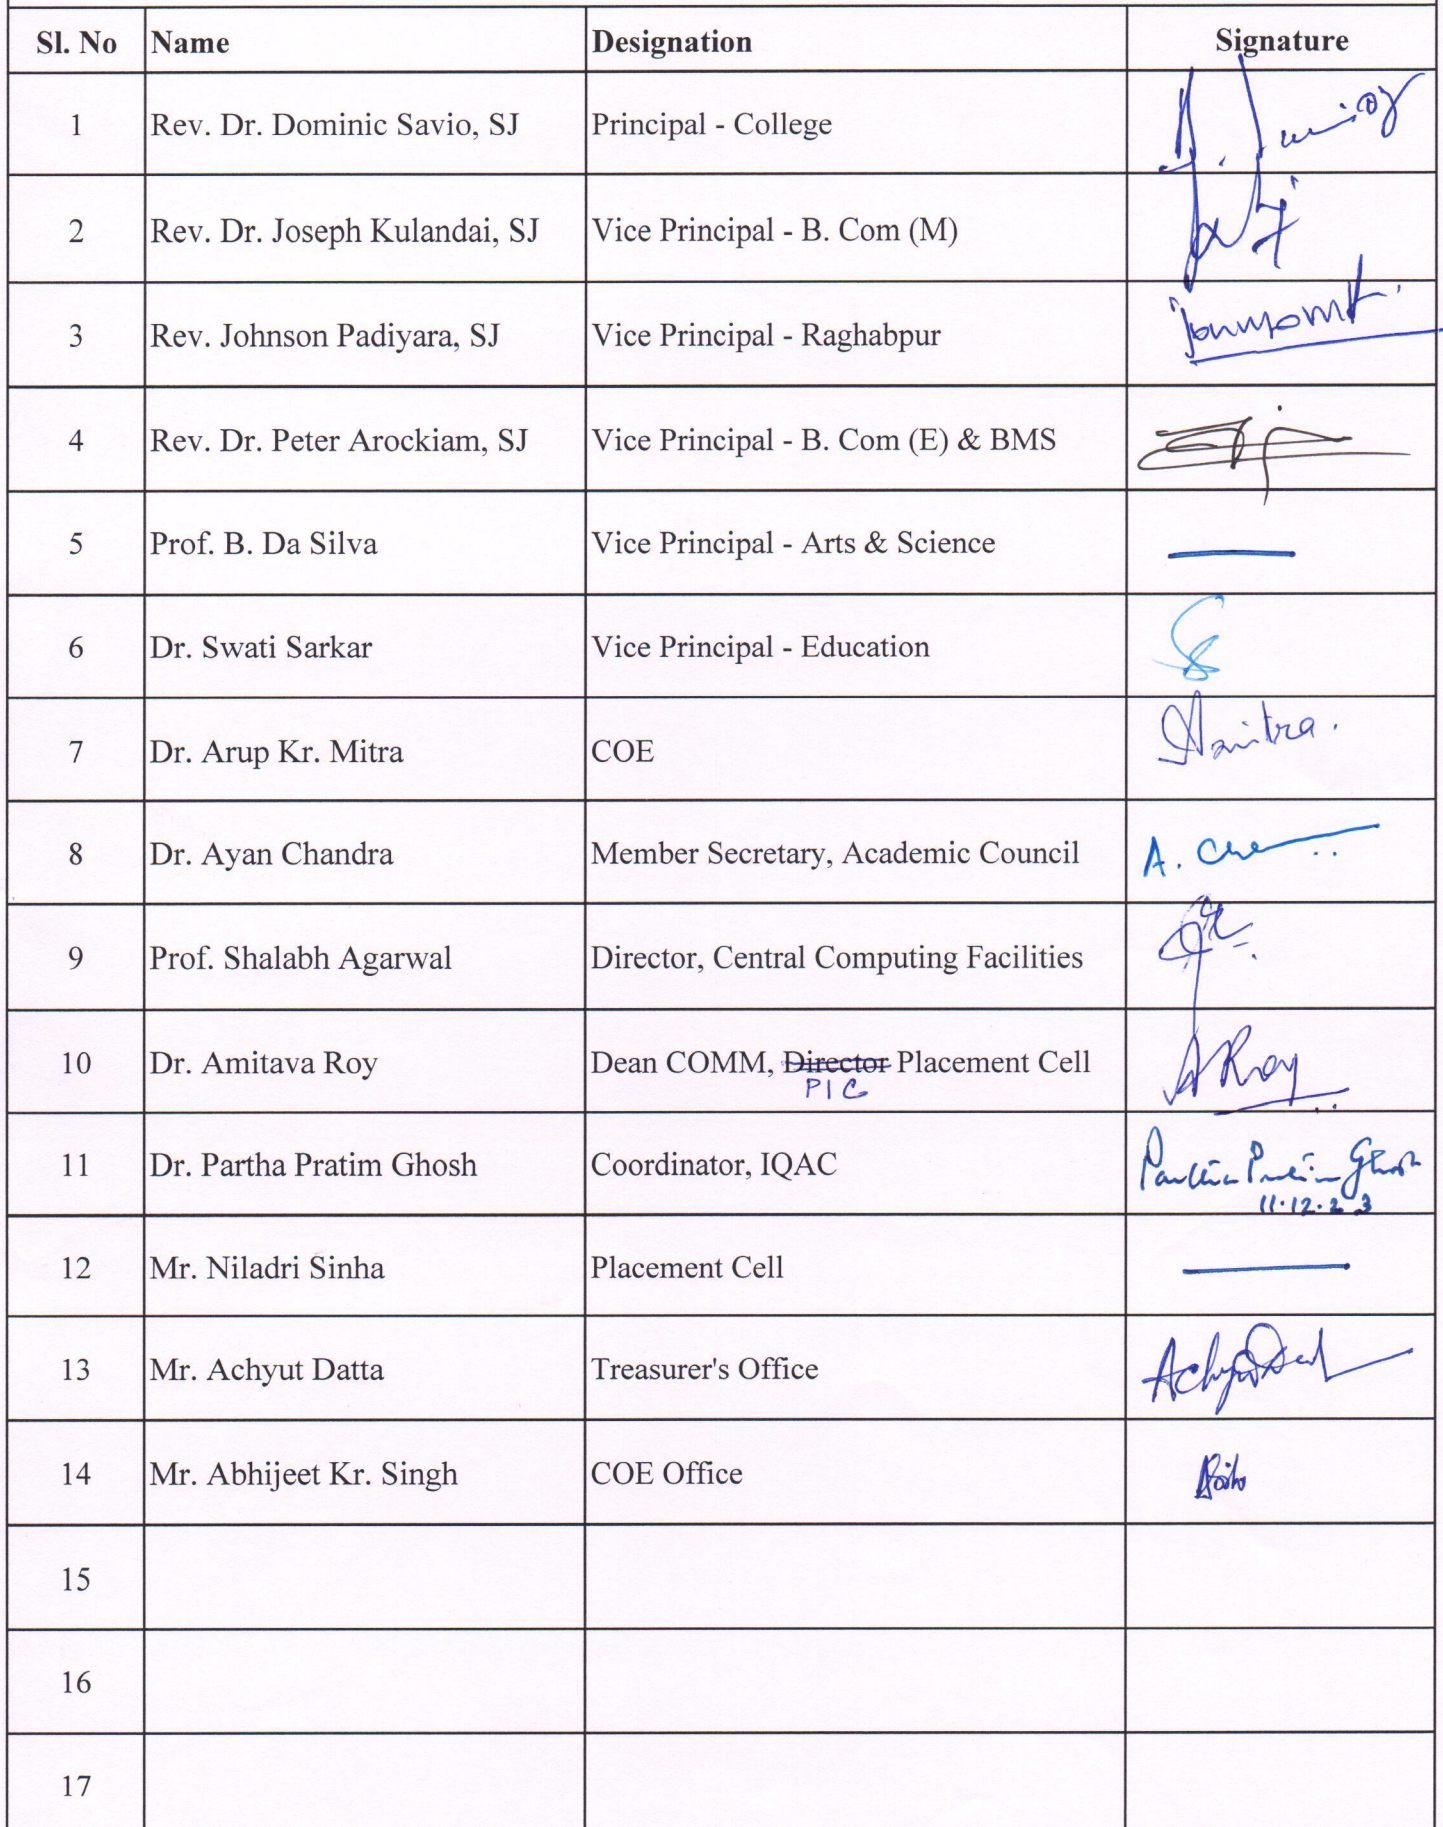 Sl. No Name Designation Signature
1 Rev. Dr. Dominic Savio, SJ Principal - College
2 Rev. Dr. Joseph Kulandai, SJ Vice Principal - B. Com (M)
3 Rev. Johnson Padiyara, SJ Vice Principal - Raghabpur
4 Rev. Dr. Peter Arockiam, SJ Vice Principal - B. Com (E) & BMS
5 Prof. B. Da Silva Vice Principal - Arts & Science
6 Dr. Swati Sarkar Vice Principal - Education
7 Dr. Arup Kr. Mitra COE
8 Dr. Ayan Chandra Member Secretary, Academic Council A.
9 Prof. Shalabh Agarwal Director, Central Computing Facilities
10 Dr. Amitava Roy Dean COMM, Director Placement Cell ARoy
PIC
11 Dr. Partha Pratim Ghosh Coordinator, IQAC Partha Pratim Ghosh
11.12.23
12 Mr. Niladri Sinha Placement Cell
13 Mr. Achyut Datta Treasurer's Office
14 Mr. Abhijeet Kr. Singh COE Office
15
16
17